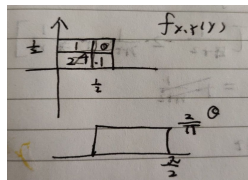 f_{X,Y}(y)
1/2 1 0
2 1
1/2
2/π θ
π/2